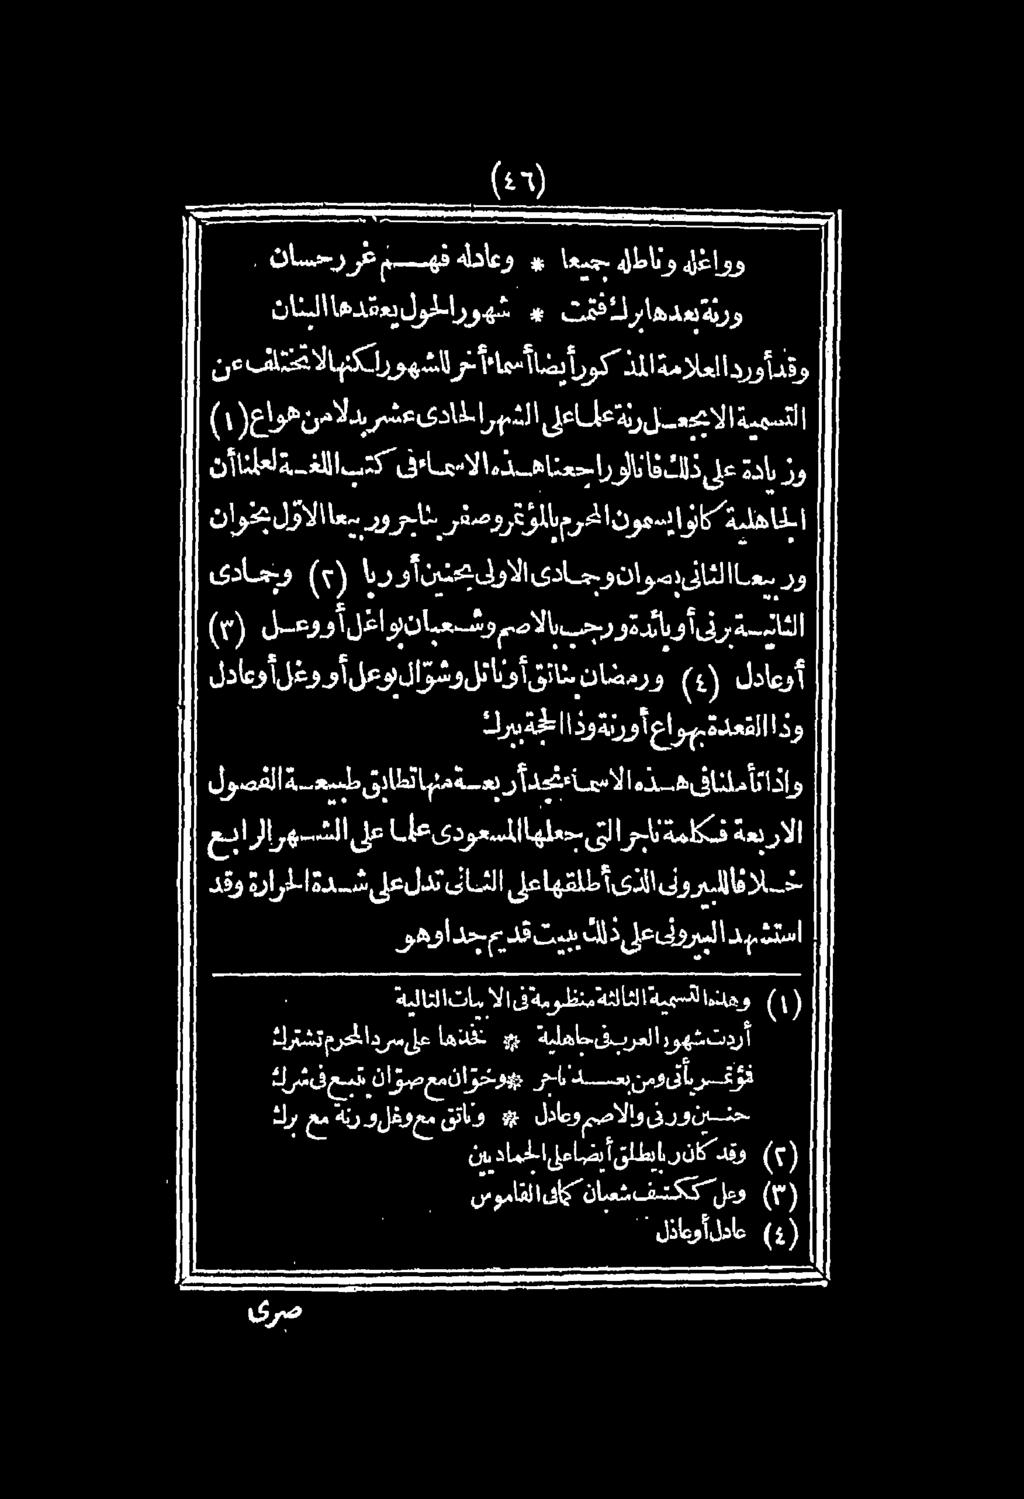 (٤٦)
وواغله وناطله جميعا * وعادله فهم غرر حسان
ورنة بعدها برك فتمت * شهور الحول يعقدها البنان
وقد أورد العلامة المذكور أيضا أسماء أخر للشهور لكنها لا تختلف عن
التسمية الا بجعل رنة علما على الشهر الحادى عشر بدلا من هواع (١)
وزيادة على ذلك فاننا لو راجعنا هذه الاسماء فى كتب اللغة لعلمنا أن
الجاهلية كانوا يسمون المحرم بالمؤتمر وصفر بناجر وربيعا الاول بخوان
وربيعا الثانى بصوان وجمادى الاولى بحنين أو ربا (٢) وجمادى
الثانية برنى أو بائدة ورجب بالاصم وشعبان بواغل أو وعل (٣)
أو عادل (٤) ورمضان بناتق أو ناتل وشوال بوعل أو وغل أو عادل
وذا القعدة بهواع أو رنة وذا الحجة ببرك
واذا تأملنا فى هذه الاسماء نجد أربعة منها تطابق طبيعة الفصول
الاربعة فكلمة ناجر التى جعلها المسعودى علما على الشهر الرابع
خلافا للبيرونى الذى أطلقها على الثانى تدل على شدة الحرارة وقد
استشهد البيرونى على ذلك ببيت قديم جدا وهو
(١) وهذه التسمية الثالثة منظومة فى الابيات التالية
أردت شهور العرب فى جاهلية * نفخذها على سرد المحرم تشترك
فمؤتمر يأتى ومن بعد ناجر * وخوان مع صوان يتبع فى شرك
حنين ورنى والاصم وعادل * وناتق مع وغل ورنة مع برك
(٢) وقد كان ربا يطلق أيضا على الجمادبين
(٣) وعل ككتف شعبان كما فى القاموس
(٤) عادل أو عاذل
صرى